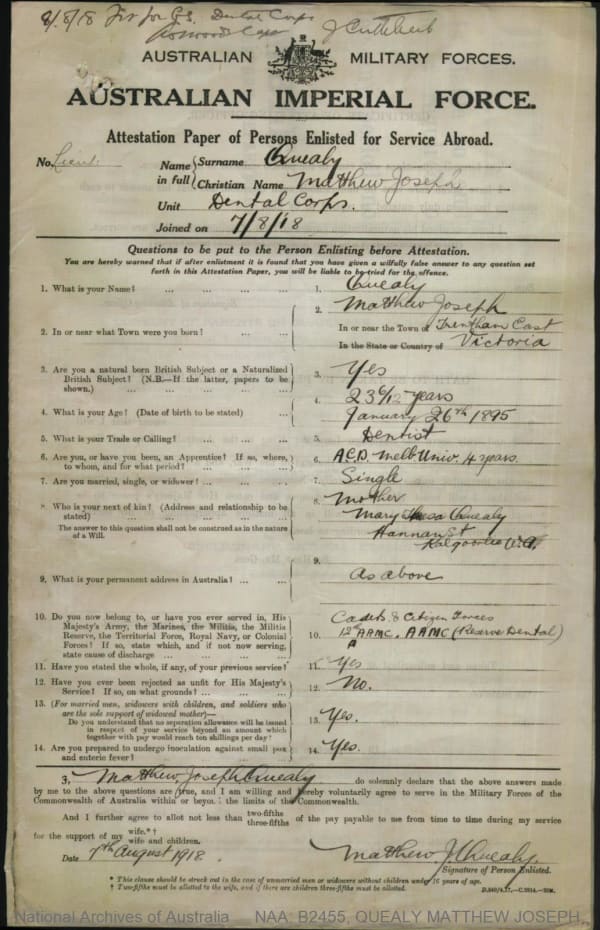 9/8/18 Fit for G.S. Dental Corps
J Cuthbert
AUSTRALIAN MILITARY FORCES.
AUSTRALIAN IMPERIAL FORCE.
Attestation Paper of Persons Enlisted for Service Abroad.
No. Lieut. Name in full Surname Quealy
Christian Name Matthew Joseph
Unit Dental Corps.
Joined on 7/8/18
Questions to be put to the Person Enlisting before Attestation.
You are hereby warned that if after enlistment it is found that you have given a wilfully false answer to any question set
forth in this Attestation Paper, you will be liable to be tried for the offence.
1. What is your Name? ... ... ... 1. Quealy
Matthew Joseph
2. In or near what Town were you born? ... ... 2. In or near the Town of Trentham East
In the State or Country of Victoria
3. Are you a natural born British Subject or a Naturalized
British Subject? (N.B.—If the latter, papers to be
shown.) ... ... ... ... 3. Yes
4. What is your Age? (Date of birth to be stated) ... 4. 23 6/12 years
January 26th 1895
5. What is your Trade or Calling? ... ... ... 5. Dentist
6. Are you, or have you been, an Apprentice? If so, where,
to whom, and for what period? ... ... ... 6. A.C.D. Melb Univ. 4 years.
7. Are you married, single, or widower? ... ... 7. Single
8. Who is your next of kin? (Address and relationship to be
stated) ... ... ... ... 8. Mother
The answer to this question shall not be construed as in the nature
of a Will. Mary Theresa Quealy
Hannan St
Kalgoorlie W.A.
9. What is your permanent address in Australia? ... ... 9. As above
10. Do you now belong to, or have you ever served in, His
Majesty's Army, the Marines, the Militia, the Militia
Reserve, the Territorial Force, Royal Navy, or Colonial
Forces? If so, state which, and if not now serving,
state cause of discharge ... ... ... 10. Cadets & Citizen Forces
12th AAMC. AAMC (Reserve Dental)
11. Have you stated the whole, if any, of your previous service? 11. Yes
12. Have you ever been rejected as unfit for His Majesty's
Service? If so, on what grounds? ... ... ... 12. No.
13. (For married men, widowers with children, and soldiers who
are the sole support of widowed mother)—
Do you understand that no separation allowance will be issued
in respect of your service beyond an amount which
together with pay would reach ten shillings per day? 13. Yes.
14. Are you prepared to undergo inoculation against small pox
and enteric fever? ... ... ... 14. Yes.
I, Matthew Joseph Quealy do solemnly declare that the above answers made
by me to the above questions are true, and I am willing and hereby voluntarily agree to serve in the Military Forces of the
Commonwealth of Australia within or beyond the limits of the Commonwealth.
And I further agree to allot not less than two-fifths three-fifths of the pay payable to me from time to time during my service
for the support of my wife.*† wife and children.
Date 7th August 1918. Matthew J. Quealy.
Signature of Person Enlisted.
* This clause should be struck out in the case of unmarried men or widowers without children under 16 years of age.
† Two-fifths must be allotted to the wife, and if there are children three-fifths must be allotted.
National Archives of Australia NAA: B2455, QUEALY MATTHEW JOSEPH